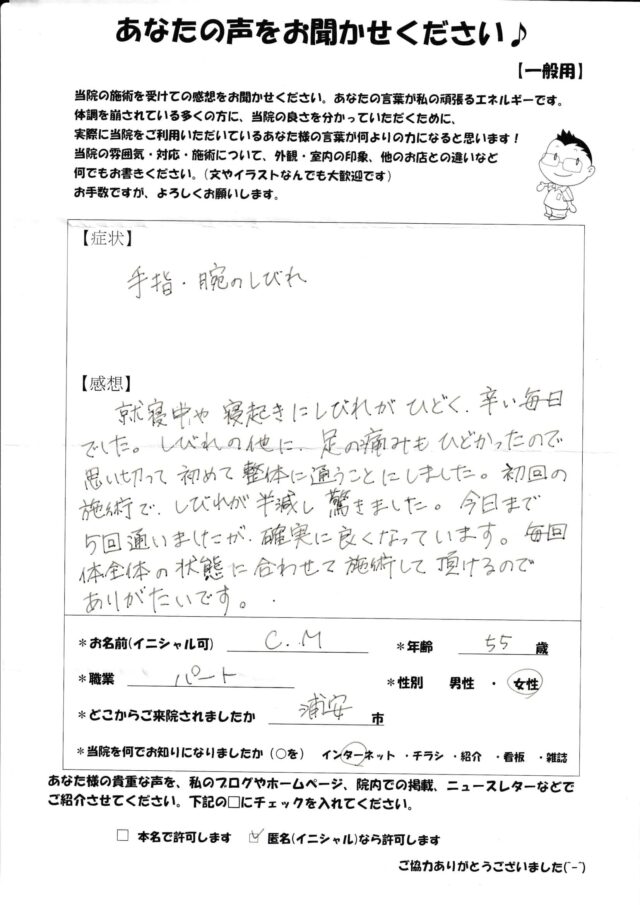 あなたの声をお聞かせください♪
【一般用】
当院の施術を受けての感想をお聞かせください。あなたの言葉が私の頑張るエネルギーです。
体調を崩されている多くの方に、当院の良さを分かっていただくために、
実際に当院をご利用いただいているあなた様の言葉が何よりの力になると思います！
当院の雰囲気・対応・施術について、外観・室内の印象、他のお店との違いなど
何でもお書きください。（文やイラストなんでも大歓迎です）
お手数ですが、よろしくお願いします。
【症状】
手指・腕のしびれ
【感想】
就寝中や寝起きにしびれがひどく、辛い毎日
でした。しびれの他に、足の痛みもひどかったので
思い切って初めて整体に通うことにしました。初回の
施術で、しびれが半減し驚きました。今日まで
5回通いましたが、確実に良くなっています。毎回
体全体の状態に合わせて施術して頂けるので
ありがたいです。
＊お名前(イニシャル可) C.M ＊年齢 55 歳
＊職業 パート ＊性別 男性 ・ 女性
＊どこからご来院されましたか 浦安 市
＊当院を何でお知りになりましたか（○を） インターネット ・チラシ ・紹介 ・看板 ・雑誌
あなた様の貴重な声を、私のブログやホームページ、院内での掲載、ニュースレターなどで
ご紹介させてください。下記の□にチェックを入れてください。
□ 本名で許可します ☑ 匿名(イニシャル)なら許可します
ご協力ありがとうございました(^-^)